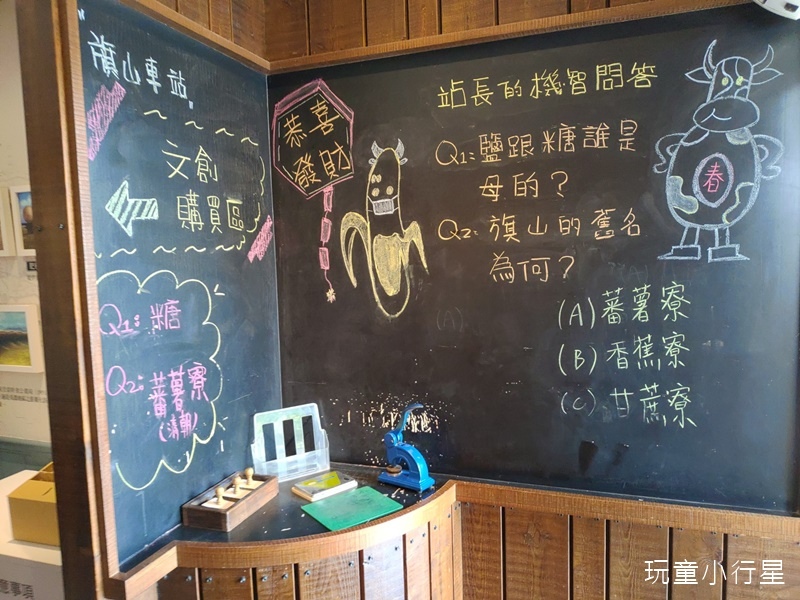 旗山車站
文創
購買區
Q1: 糖
Q2: 蕃薯寮
(清朝)
恭喜
發財
站長的機智問答
Q1: 鹽跟糖誰是
母的?
Q2: 旗山的舊名
為何?
(A) 蕃薯寮
(B) 香蕉寮
(C) 甘蔗寮
春
意事項
玩童小行星